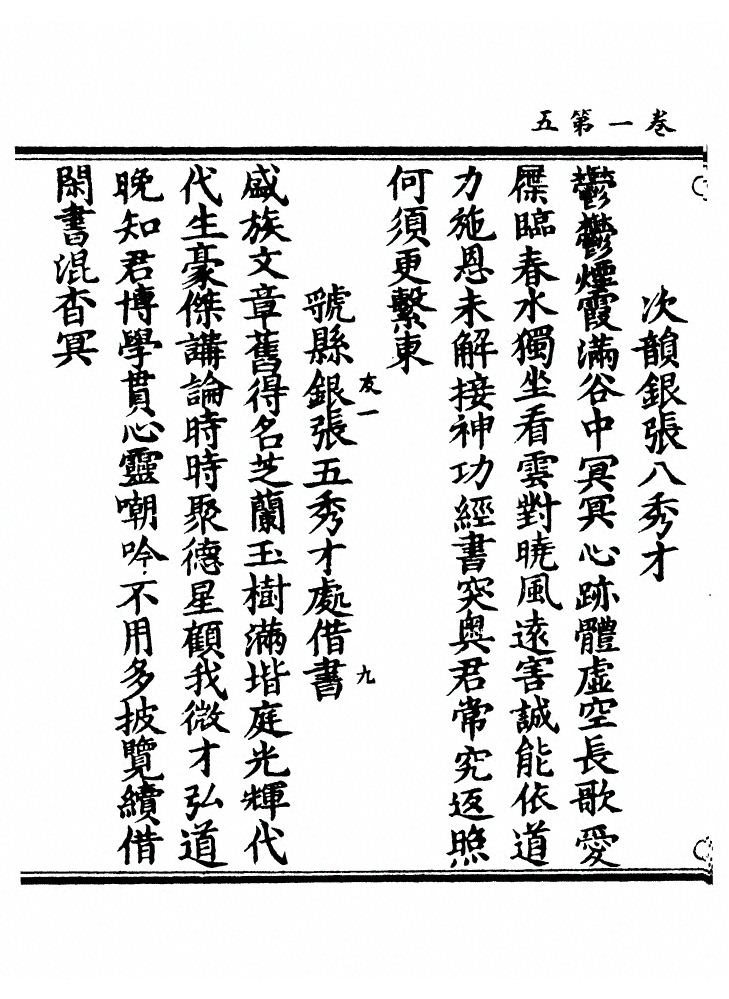 卷一第五
次韻銀張八秀才
鬱鬱煙霞滿谷中冥冥心跡體虛空長歌愛
屧臨春水獨坐看雲對曉風遠害誠能依道
力施恩未解接神功經書突奧君常究返照
何須更繫東
虢縣銀張五秀才處借書
友一
九
盛族文章舊得名芝蘭玉樹滿堦庭光輝代
代生豪傑講論時時聚德星顧我微才弘道
晚知君博學貫心靈嘲吟不用多披覽續借
閑書混杳冥